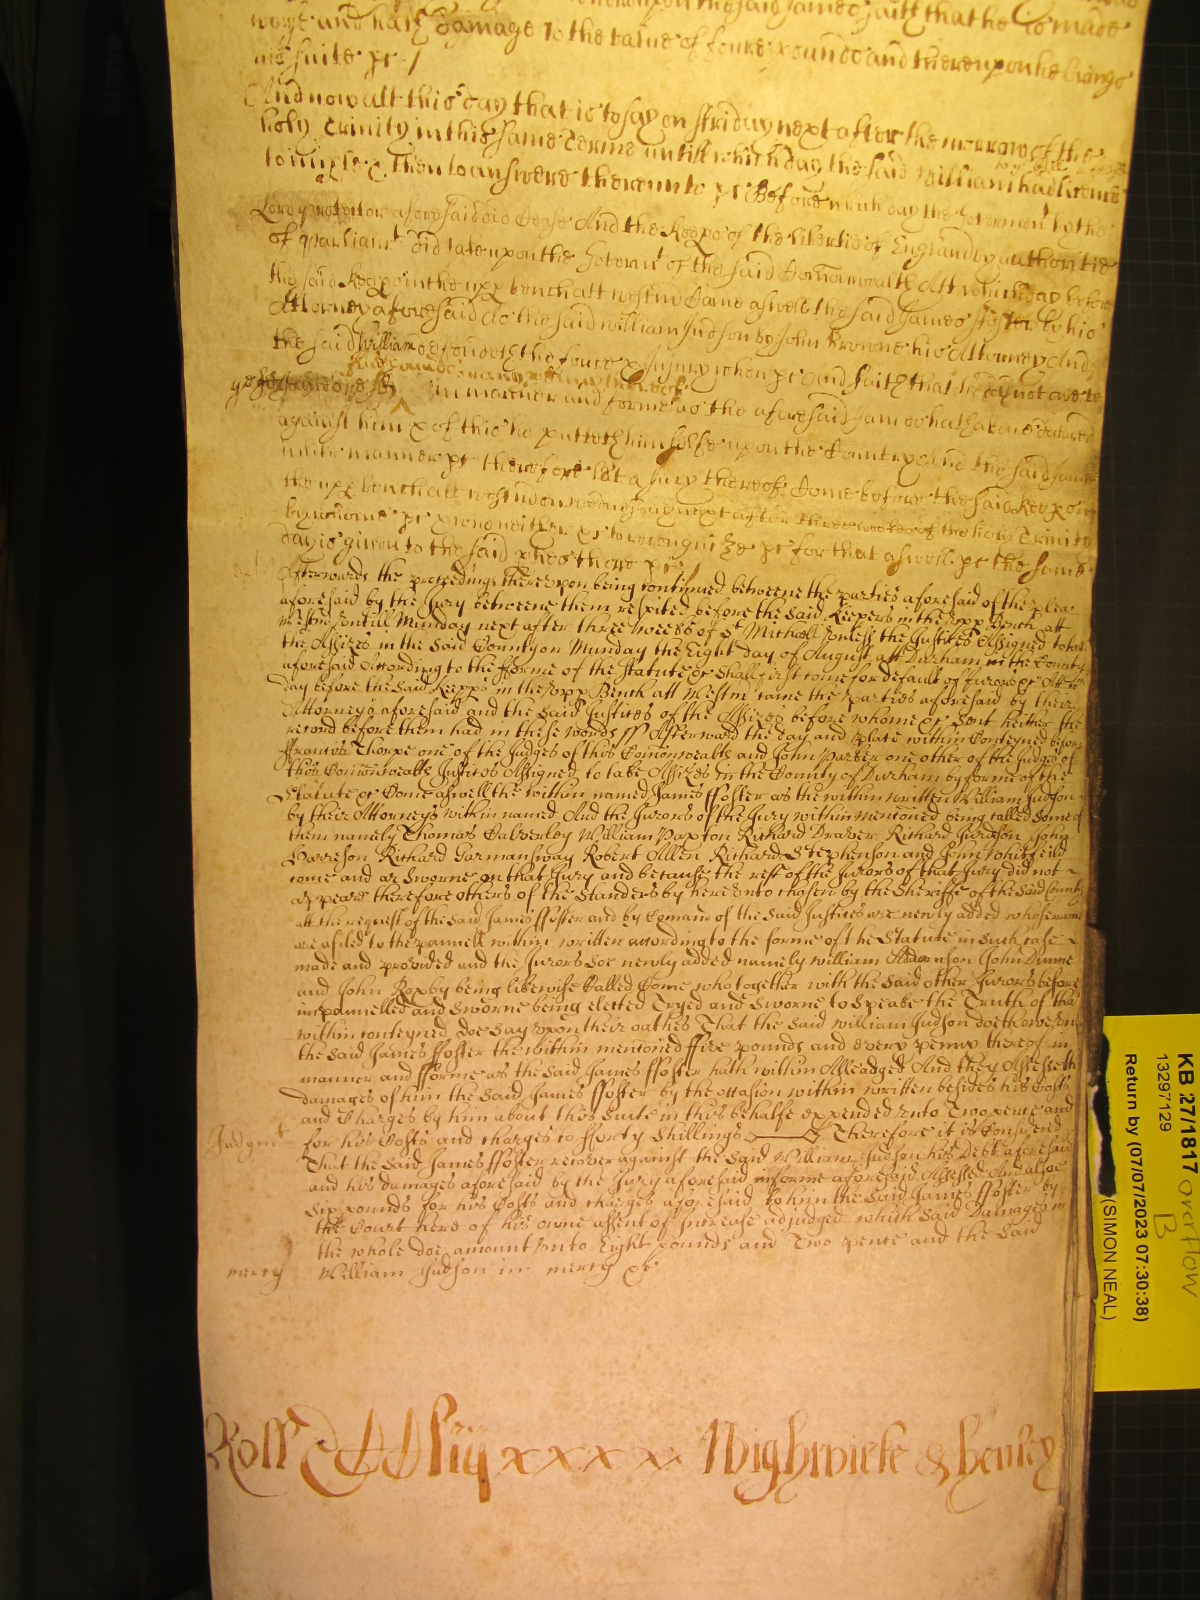 thereupon the said James saith that he is made
worse and hath damage to the value of foure pounds and thereupon he brings
his suite &c /
And now att this day that is to say on ffriday next after the morrow of the
holy Trinity in this same Terme untill which day the said William had licence
to imparle & then to answere thereunto &c Before which day the Governmt by the
Lord Protector aforesaid did Cease And the Keeps of the libertie of England by authoritie
of Parliamt did take upon the Governt of the said Comonwealth Att which day before
the said Keeps in the upp bench att Westm Came aswell the said James ffoster by his
Attorney aforesaid as the said William Judson by John Browne his Attorney And
the said William defendeth the force & Injury when &c and saith that he doth not owe to
in manner and forme as the aforesaid James hath above declared
against him & of this he putteth himselfe upon the Country And the said James
in like manner &c therefore let a Jury thereof Come before the said Keeps in
the upp bench att Westm on wednesday next after three weekes of the holy Trinity
by whome &c & who neither &c to recognize &c for that aswell &c the same
day is given to the said pties there &c
Afterwards the proceedings thereupon being continued betweene the parties aforesaid of the plea
aforesaid by the Jury betweene them respited before the said Keepers in the upp Bench att
Westm untill Munday next after three weeks of St Michaell unless the Justices Assigned to take
the Assizes in the said County on Munday the Eight day of August att Durham in the County
aforesaid According to the fforme of the Statute &c shall first come for default of Jurors &c Att which
day before the said Keeps in the upp Bench att Westm came the parties aforesaid by their
Attorneys aforesaid and the said Justices of the Assizes before whome &c Sent heither the
record before them had in these words ss Afterward the day and place within Conteyned before
ffrancis Thorpe one of the Judges of this Comonwealth and John Parker one other of the Judges of
this Comonwealth Justices Assigned to take Assizes in the County of Durham by forme of the
Statute &c Come aswell the within named James ffoster as the within written William Judson
by their Attorneys within named And the Jurors of the Jury within mentioned being called some of
them namely Thomas Calverley William Paxton Richard Draver Richard Juradson John
Harrison Richard Garmansway Robert Allen Richard Stephenson and John Whitfeild
come and are sworne on that Jury and because the rest of the Jurors of that Jury did not
appeare therefore others of the Standers by hereunto chosen by the Sheriffe of the said County
att the request of the said James ffoster and by Comand of the said Justices are newly added whose names
are afiled to the pannell within written according to the forme of the Statute in such case
made and provided and the Jurors soe newly added namely William Adamson John Dunne
and John Roxby being likewise Called Come who together with the said other Jurors before
impannelled and sworne being elected Tryed and Sworne to Speake the Truth of the
within conteyned doe say upon their oathes That the said William Judson doth owe unto
the said James ffoster the within mentioned ffive pounds and every penny thereof in
manner and fforme as the said James ffoster hath within Alleadged And they Assesse the
damages of him the said James ffoster by the occasion within written besides his Costs
and Charges by him about this Suite in this behalfe expended unto Two pence and
Judgmt for his Costs and charges to fforty Shillings Therefore it is Considered
That the said James ffoster recover against the said William Judson his Debt aforesaid
and his damages aforesaid by the Jury aforesaid in forme aforesaid Assessed And alsoe
Six pounds for his Costs and charges aforesaid to him the said James ffoster by
the Court here of his owne assent of Increase adjudged which said damages in
the whole doe amount unto Eight pounds and Two pence and the said
mercy William Judson in mercy &c
Roll xxxx Wightwicke & Henley
KB 27/1817 overflow
B
13297129
Return by (07/07/2023 07:30:38)
(SIMON NEAL)